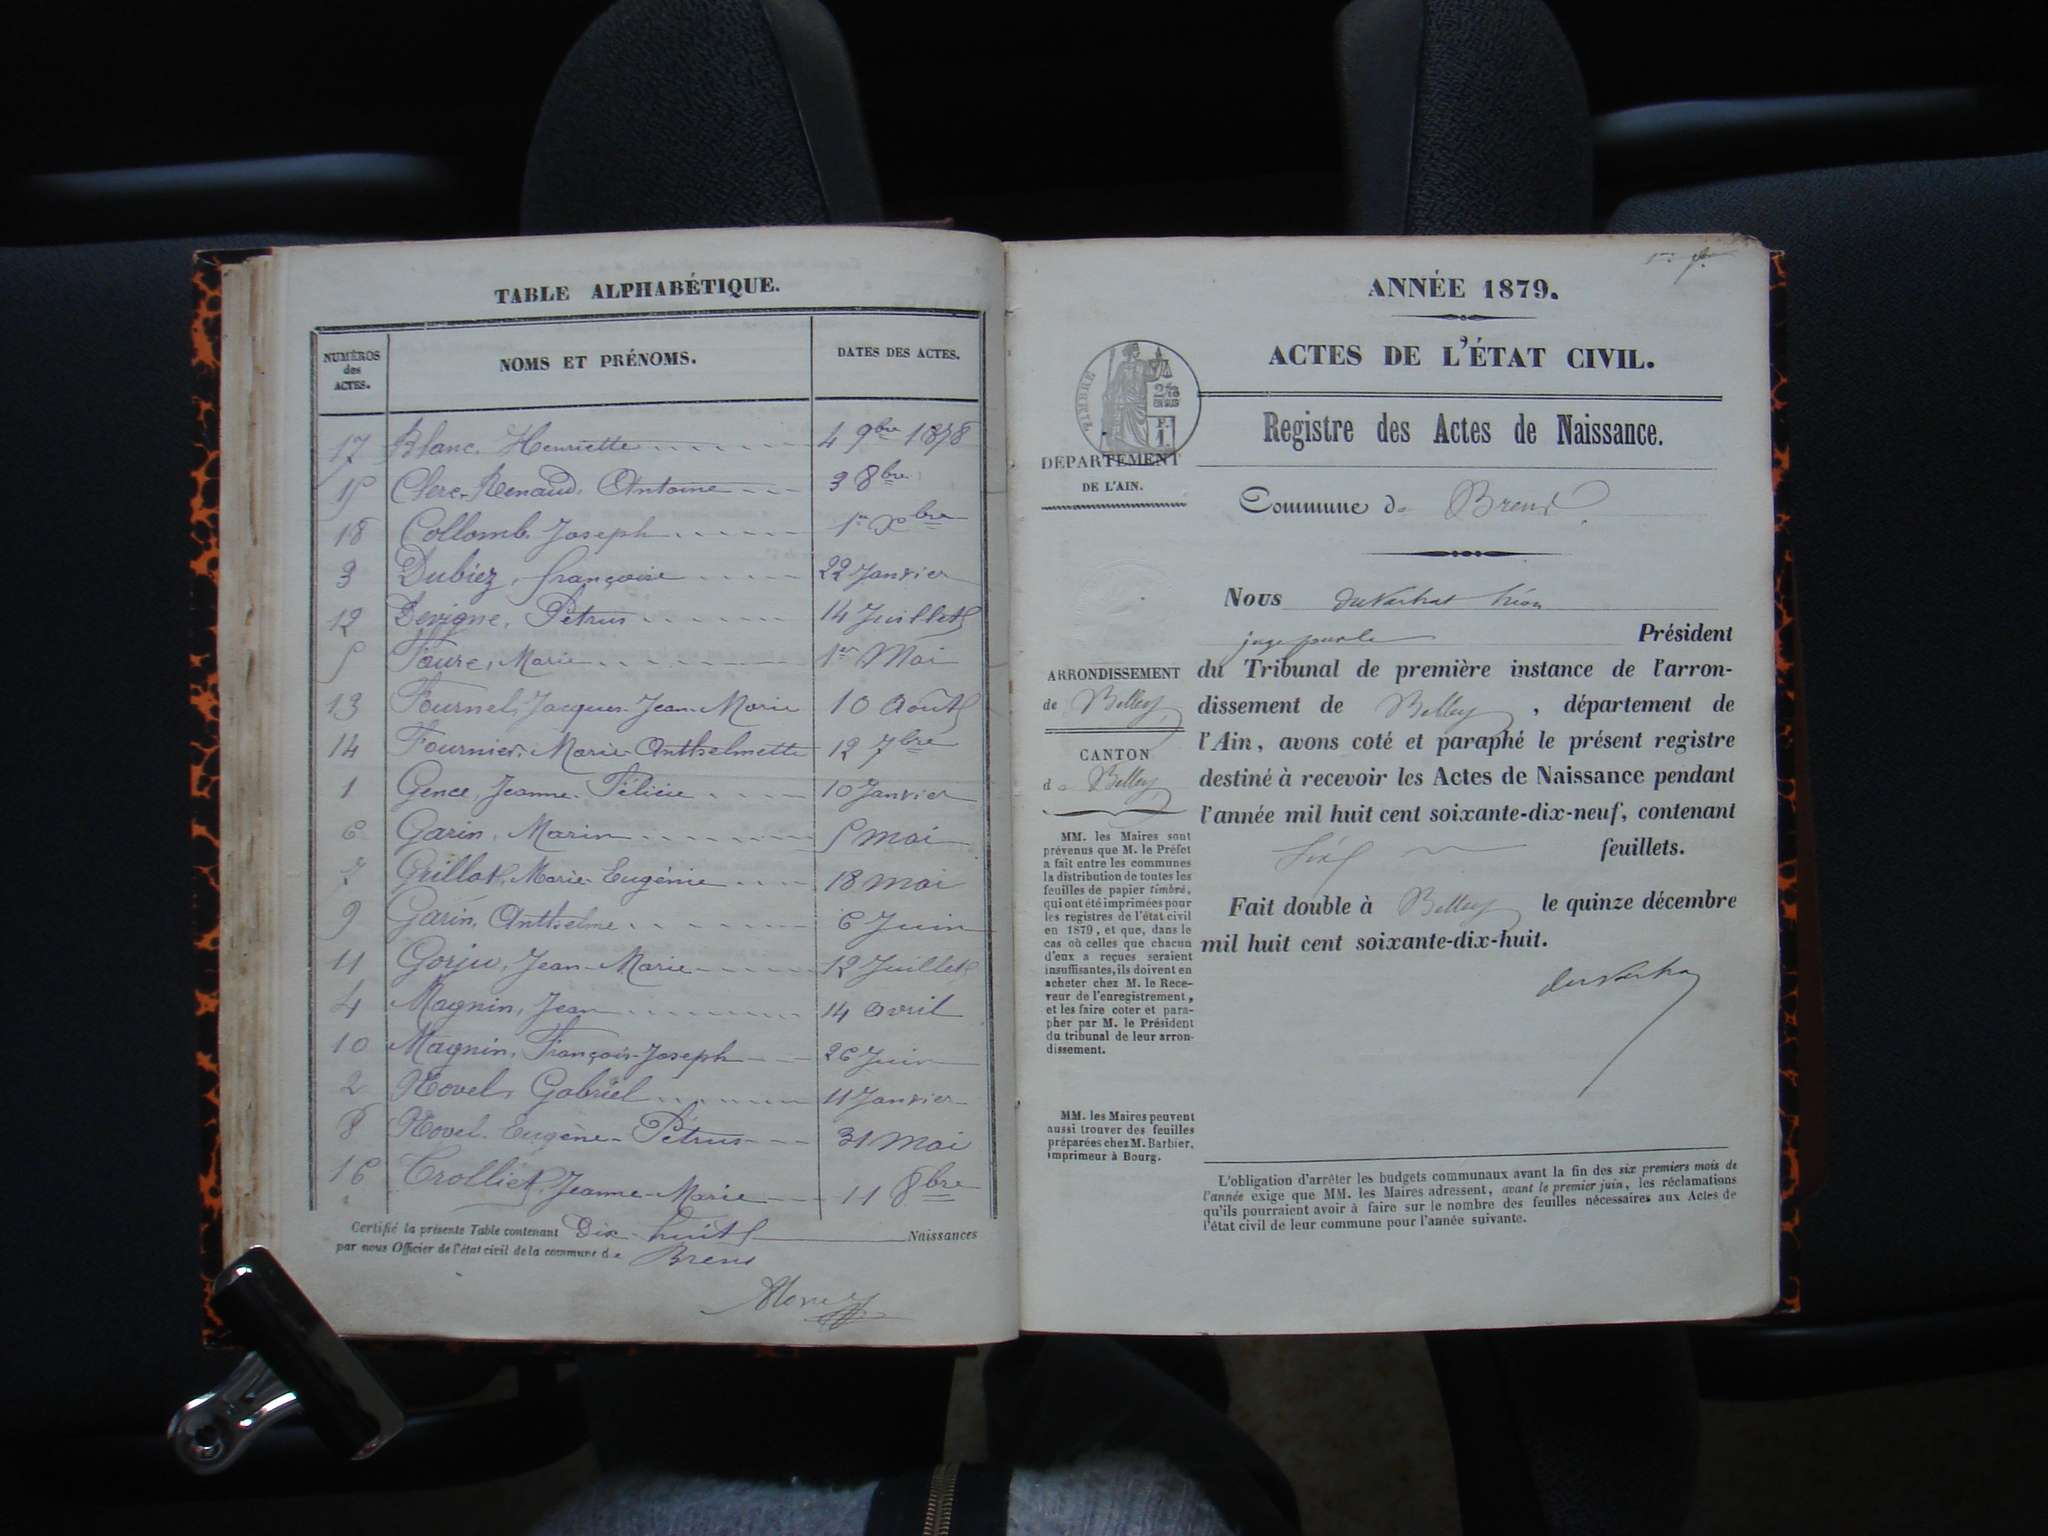 TABLE ALPHABÉTIQUE.
NUMÉROS des ACTES.
NOMS ET PRÉNOMS.
DATES DES ACTES.
17 Blanc, Henriette 4 9bre 1878
15 Clerc-Renaud, Antoine 3 8bre
18 Collomb, Joseph 1er Xbre
3 Dubiez, françoise 22 Janvier
12 Devigne, Pétrus 14 Juillet
5 Faure, Marie 1er Mai
13 Fournel, Jacques-Jean-Marie 10 Août
14 Fournier, Marie-Anthelmette 12 7bre
1 Gence, Jeanne-Félicie 10 Janvier
6 Garin, Marin 5 mai
7 Grillot, Marie-Eugénie 18 mai
9 Garin, Anthelme 6 Juin
11 Gorju, Jean-Marie 12 Juillet
4 Magnin, Jean 14 avril
10 Magnin, François-Joseph 26 Juin
2 Novel, Gabriel 11 Janvier
8 Novel, Eugène-Pétrus 31 mai
16 Trolliet, Jeanne-Marie 11 8bre
Certifié la présente Table contenant Dix-huit Naissances
par nous Officier de l'état civil de la commune de Brens
ANNÉE 1879.
ACTES DE L'ÉTAT CIVIL.
TIMBRE
Registre des Actes de Naissance.
DÉPARTEMENT
DE L'AIN.
Commune de Brens
Nous
Président
du Tribunal de première instance de l'arron-
dissement de Belley, département de
l'Ain, avons coté et paraphé le présent registre
destiné à recevoir les Actes de Naissance pendant
l'année mil huit cent soixante-dix-neuf, contenant
feuillets.
Fait double à Belley le quinze décembre
mil huit cent soixante-dix-huit.
ARRONDISSEMENT
de Belley
CANTON
de Belley
MM. les Maires sont
prévenus que M. le Préfet
a fait entre les communes
la distribution de toutes les
feuilles de papier timbré,
qui ont été imprimées pour
les registres de l'état civil
en 1879, et que, dans le
cas où celles que chacun
d'eux a reçues seraient
insuffisantes, ils doivent en
acheter chez M. le Rece-
veur de l'enregistrement,
et les faire coter et para-
pher par M. le Président
du tribunal de leur arron-
dissement.
MM. les Maires peuvent
aussi trouver des feuilles
préparées chez M. Barbier,
imprimeur à Bourg.
L'obligation d'arrêter les budgets communaux avant la fin des six premiers mois de
l'année exige que MM. les Maires adressent, avant le premier juin, les réclamations
qu'ils pourraient avoir à faire sur le nombre des feuilles nécessaires aux Actes de
l'état civil de leur commune pour l'année suivante.